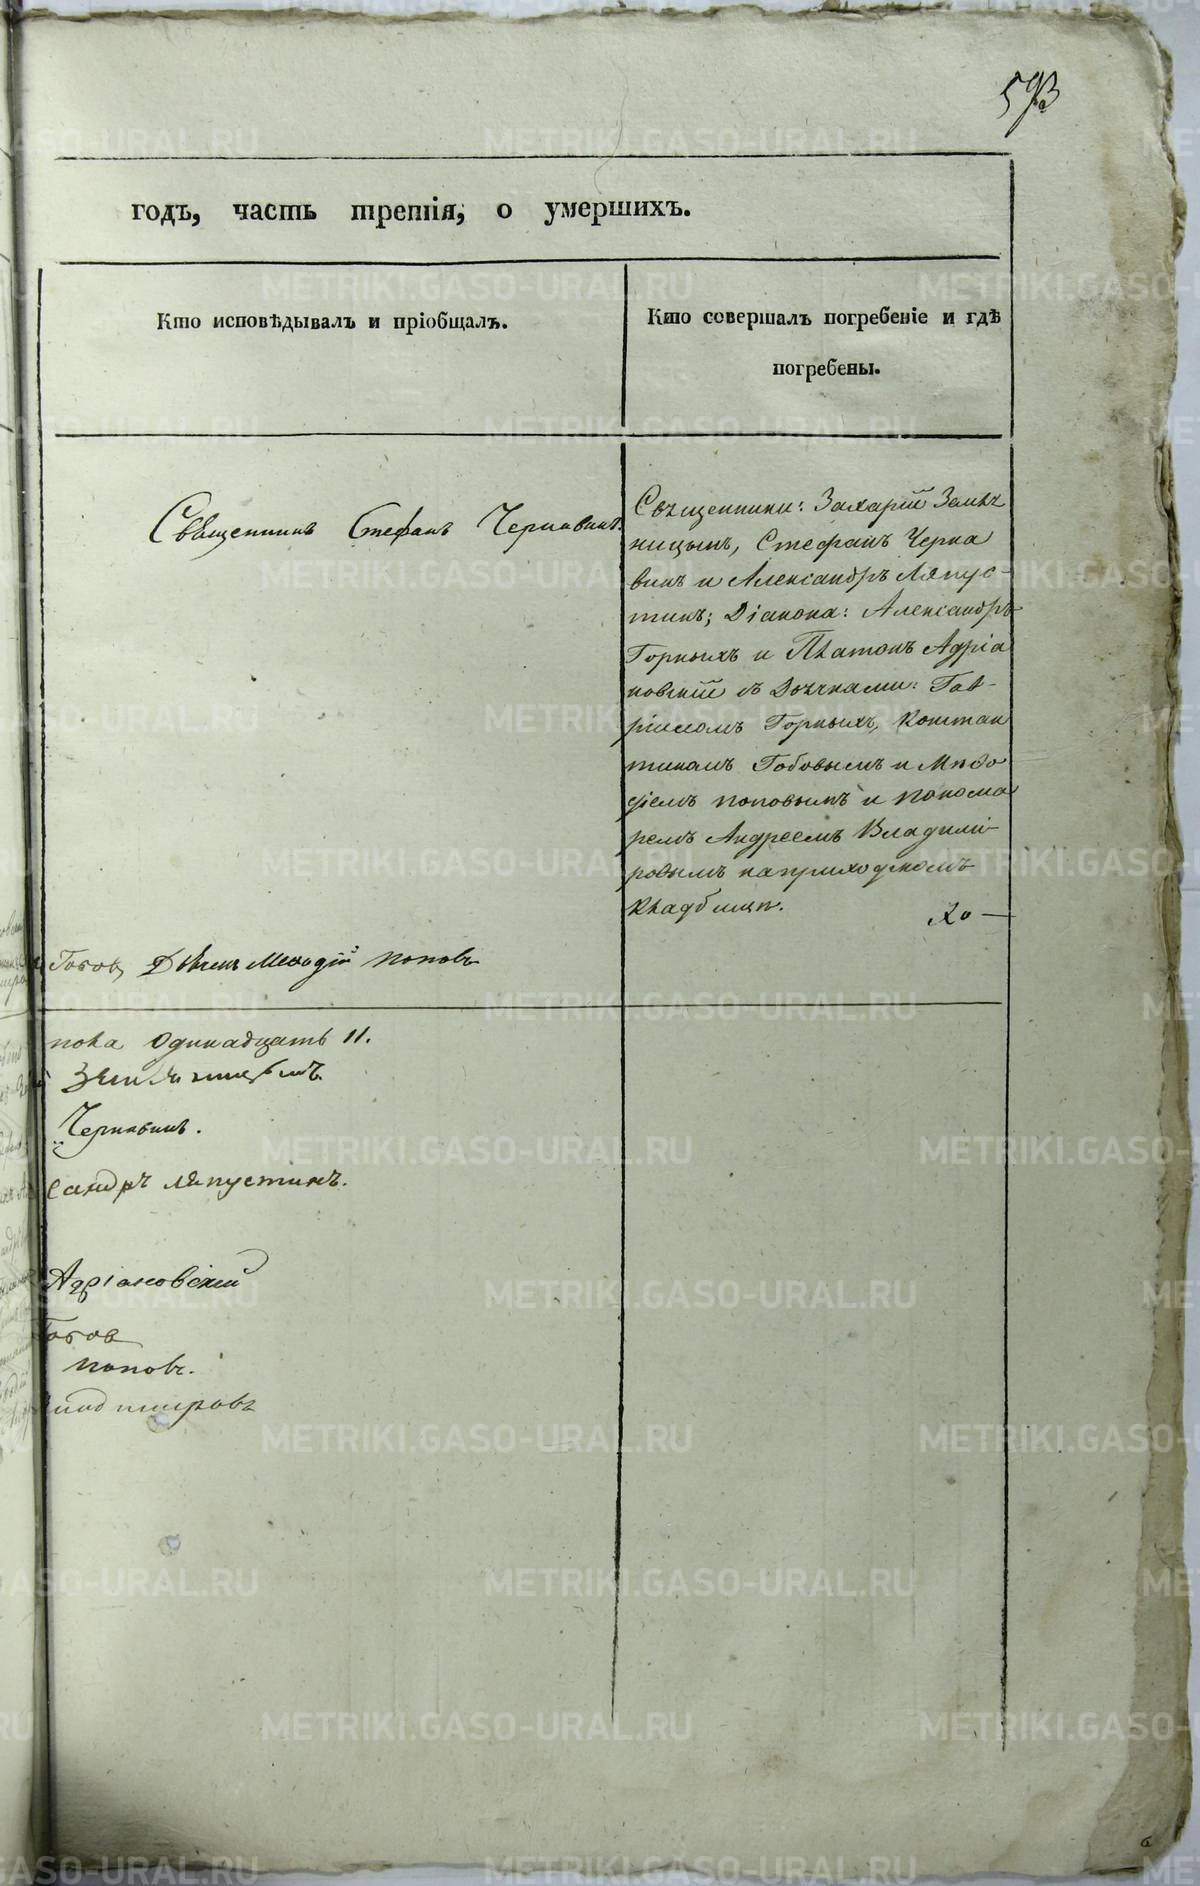 593
годъ, часть третія, о умершихъ.
Кто исповѣдывалъ и пріобщалъ.
Кто совершалъ погребеніе и гдѣ
погребены.
Священникъ Стефанъ Чернавинъ.
Священники: Захарій Земля
ницынъ, Стефанъ Черна
винъ и Александръ Ляпус-
тинъ; Діакона: Александръ
Горныхъ и Платонъ Адріа
новскій съ Дьячками: Гав-
ріиломъ Горныхъ, Констан
тиномъ Гобовымъ и Меѳо
діемъ поповымъ и понома
ремъ Андреемъ Владимі-
ровымъ на приходскомъ
кладбищѣ.
Хо—
Гобовъ, Дьячекъ Меѳодій поповъ
пола одинадцать 11.
Земляницынъ.
Чернавинъ.
сандръ Ляпустинъ.
Адріановскій
Гобов
поповъ.
Владимировъ
METRIKI.GASO-URAL.RU